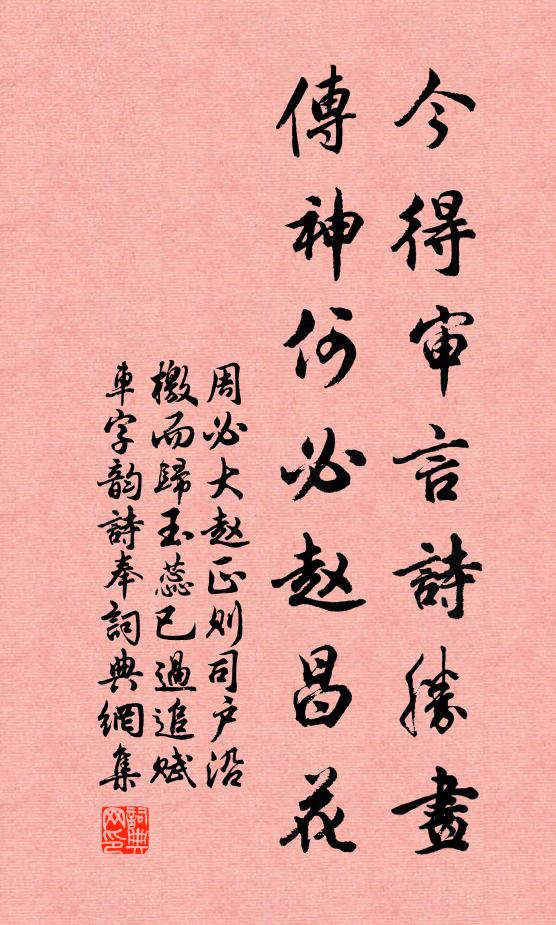 今得审言詩勝畫
傳神何必赵昌花
周必大赵正则司户沿
檄而歸玉蕊已過追赋
車字韵詩奉詞典網集
詞典
网印